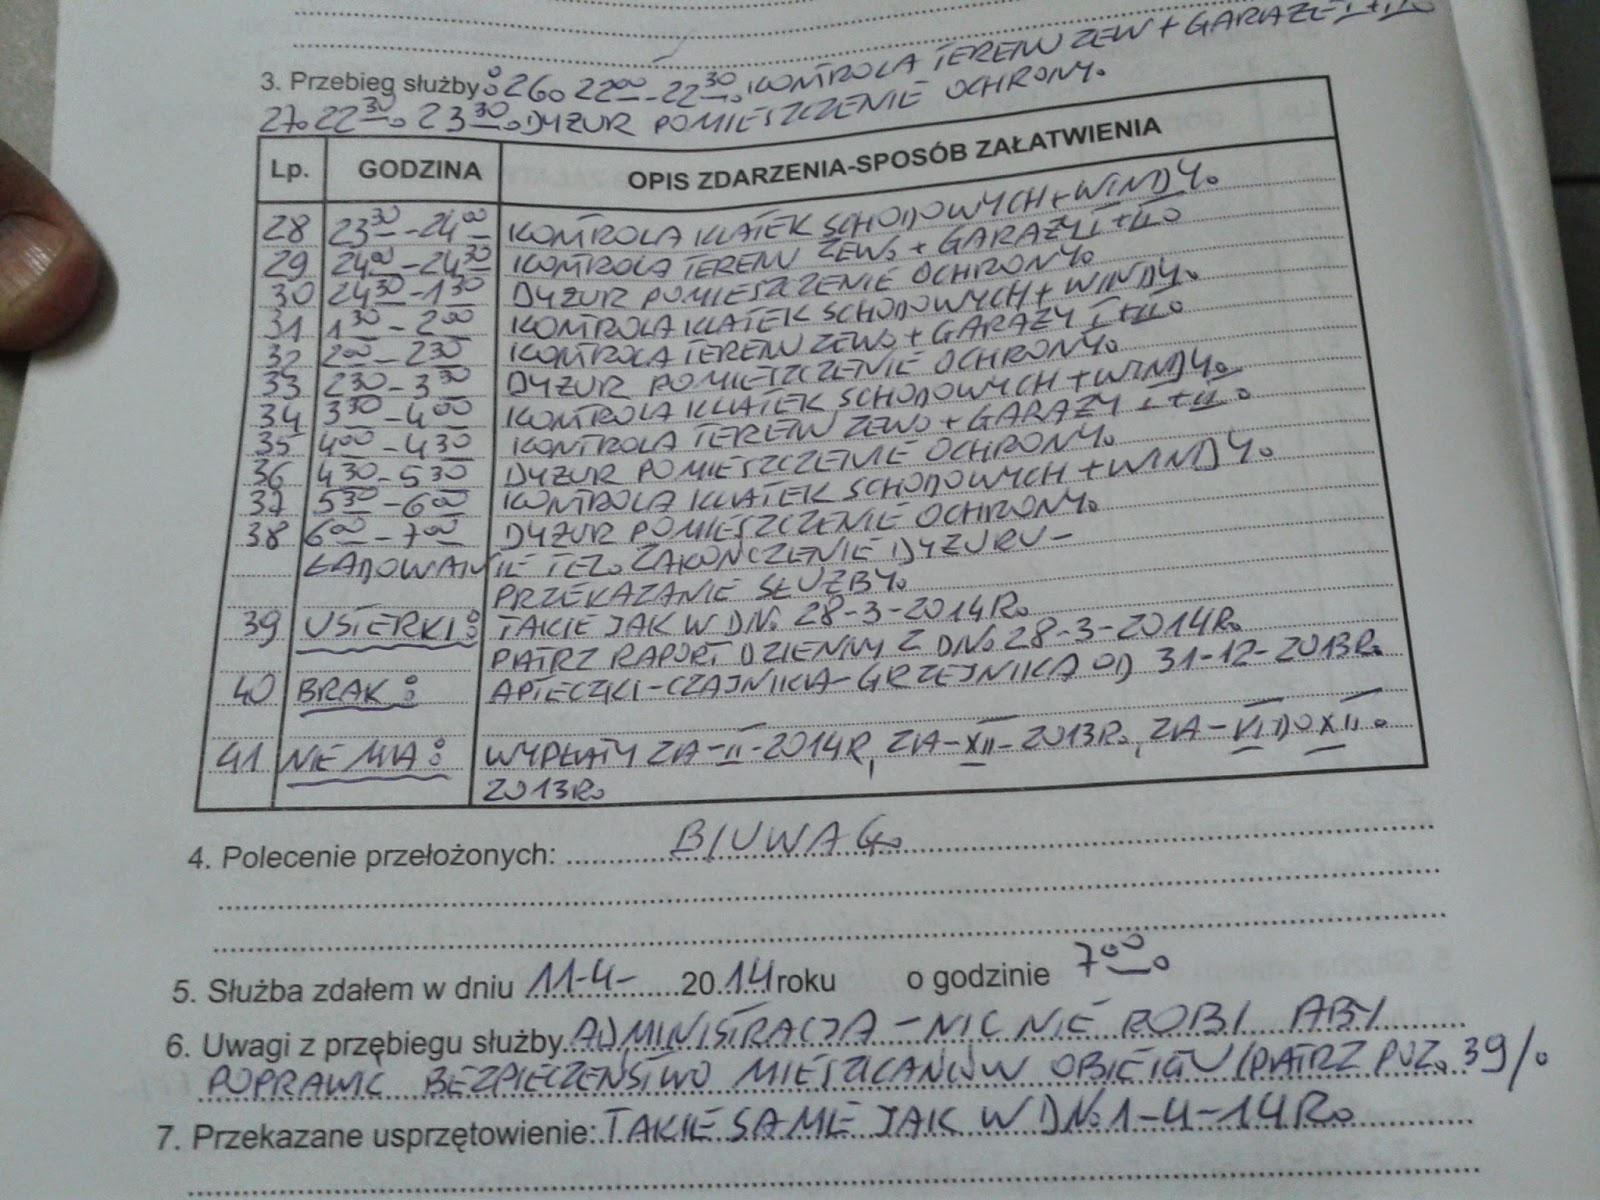 3. Przebieg służby: 26. 22⁰⁰-22³⁰. KONTROLA TERENU ZEW + GARAŻE I+II.
27. 22³⁰. 23³⁰. DYŻUR POMIESZCZENIE OCHRONY.
Lp. GODZINA OPIS ZDARZENIA-SPOSÓB ZAŁATWIENIA
28 23³⁰-24⁰⁰ KONTROLA KLATEK SCHODOWYCH + WINDY.
29 24⁰⁰-24³⁰ KONTROLA TERENU ZEW. + GARAŻY I+II.
30 24³⁰-1³⁰ DYŻUR POMIESZCZENIE OCHRONY.
31 1³⁰-2⁰⁰ KONTROLA KLATEK SCHODOWYCH + WINDY.
32 2⁰⁰-2³⁰ KONTROLA TERENU ZEW. + GARAŻY I+II.
33 2³⁰-3³⁰ DYŻUR POMIESZCZENIE OCHRONY.
34 3³⁰-4⁰⁰ KONTROLA KLATEK SCHODOWYCH + WINDY.
35 4⁰⁰-4³⁰ KONTROLA TERENU ZEW. + GARAŻY I+II.
36 4³⁰-5³⁰ DYŻUR POMIESZCZENIE OCHRONY.
37 5³⁰-6⁰⁰ KONTROLA KLATEK SCHODOWYCH + WINDY.
38 6⁰⁰-7⁰⁰ DYŻUR POMIESZCZENIE OCHRONY.
ŁADOWANIE TEL. ZAKOŃCZENIE DYŻURU -
PRZEKAZANIE SŁUŻBY.
39 USTERKI: TAKIE JAK W DN. 28-3-2014R.
PATRZ RAPORT DZIENNY Z DN. 28-3-2014R.
40 BRAK: APTECZKI-CZAJNIKA-GRZEJNIKA OD 31-12-2013R.
41 NIE MA: WYPŁATY ZA-II-2014R, ZA-XII-2013R., ZA-VI DO XII.
2013R.
4. Polecenie przełożonych: B/UWAG.
5. Służba zdałem w dniu 11-4- 2014 roku o godzinie 7⁰⁰.
6. Uwagi z przębiegu służby ADMINISTRACJA - NIC NIE ROBI ABY
POPRAWIĆ BEZPIECZEŃSTWO MIESZKAŃCÓW OBIEKTU (PATRZ POZ. 39/.
7. Przekazane usprzętowienie: TAKIE SAME JAK W DN. 1-4-14R.